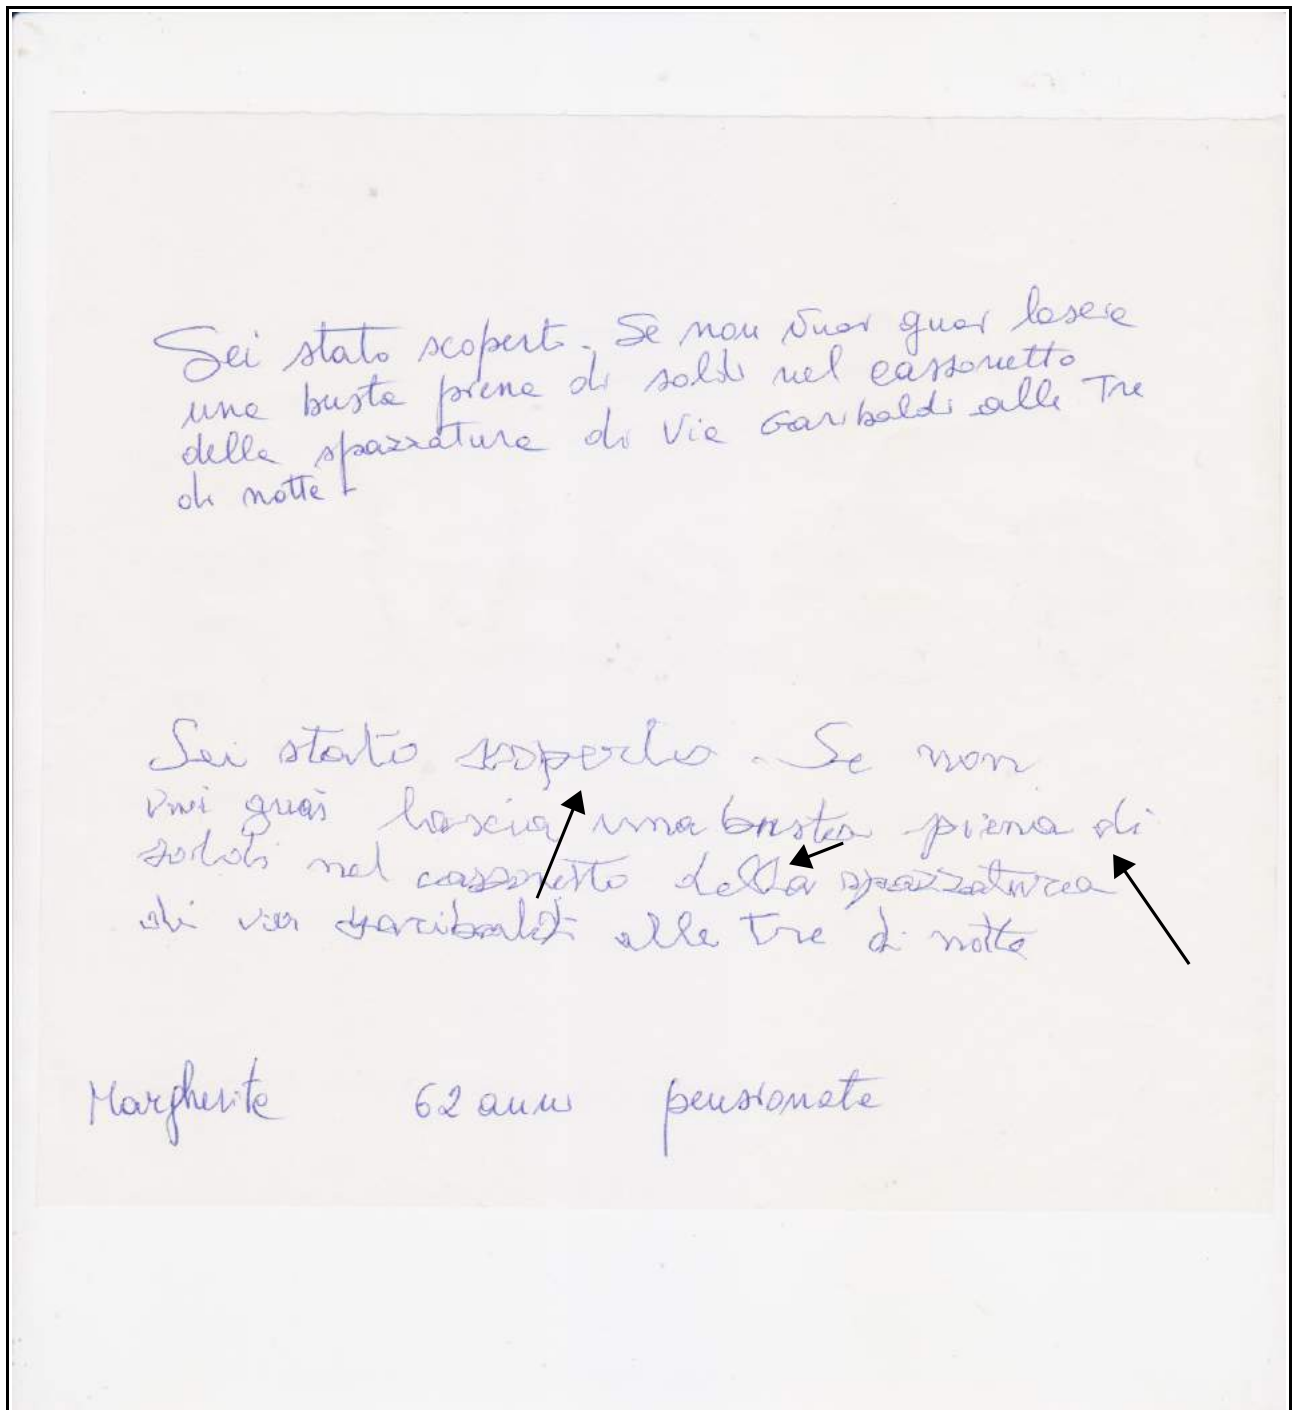 Sei stato scoperto. Se non vuoi guai lascia
una busta piena di soldi nel cassonetto
della spazzatura di Via Garibaldi alle Tre
di notte
Sei stato scoperto. Se non
vuoi guai lascia una busta piena di
soldi nel cassonetto della spazzatura
di via Garibaldi alle Tre di notte
Margherita 62 anni pensionata